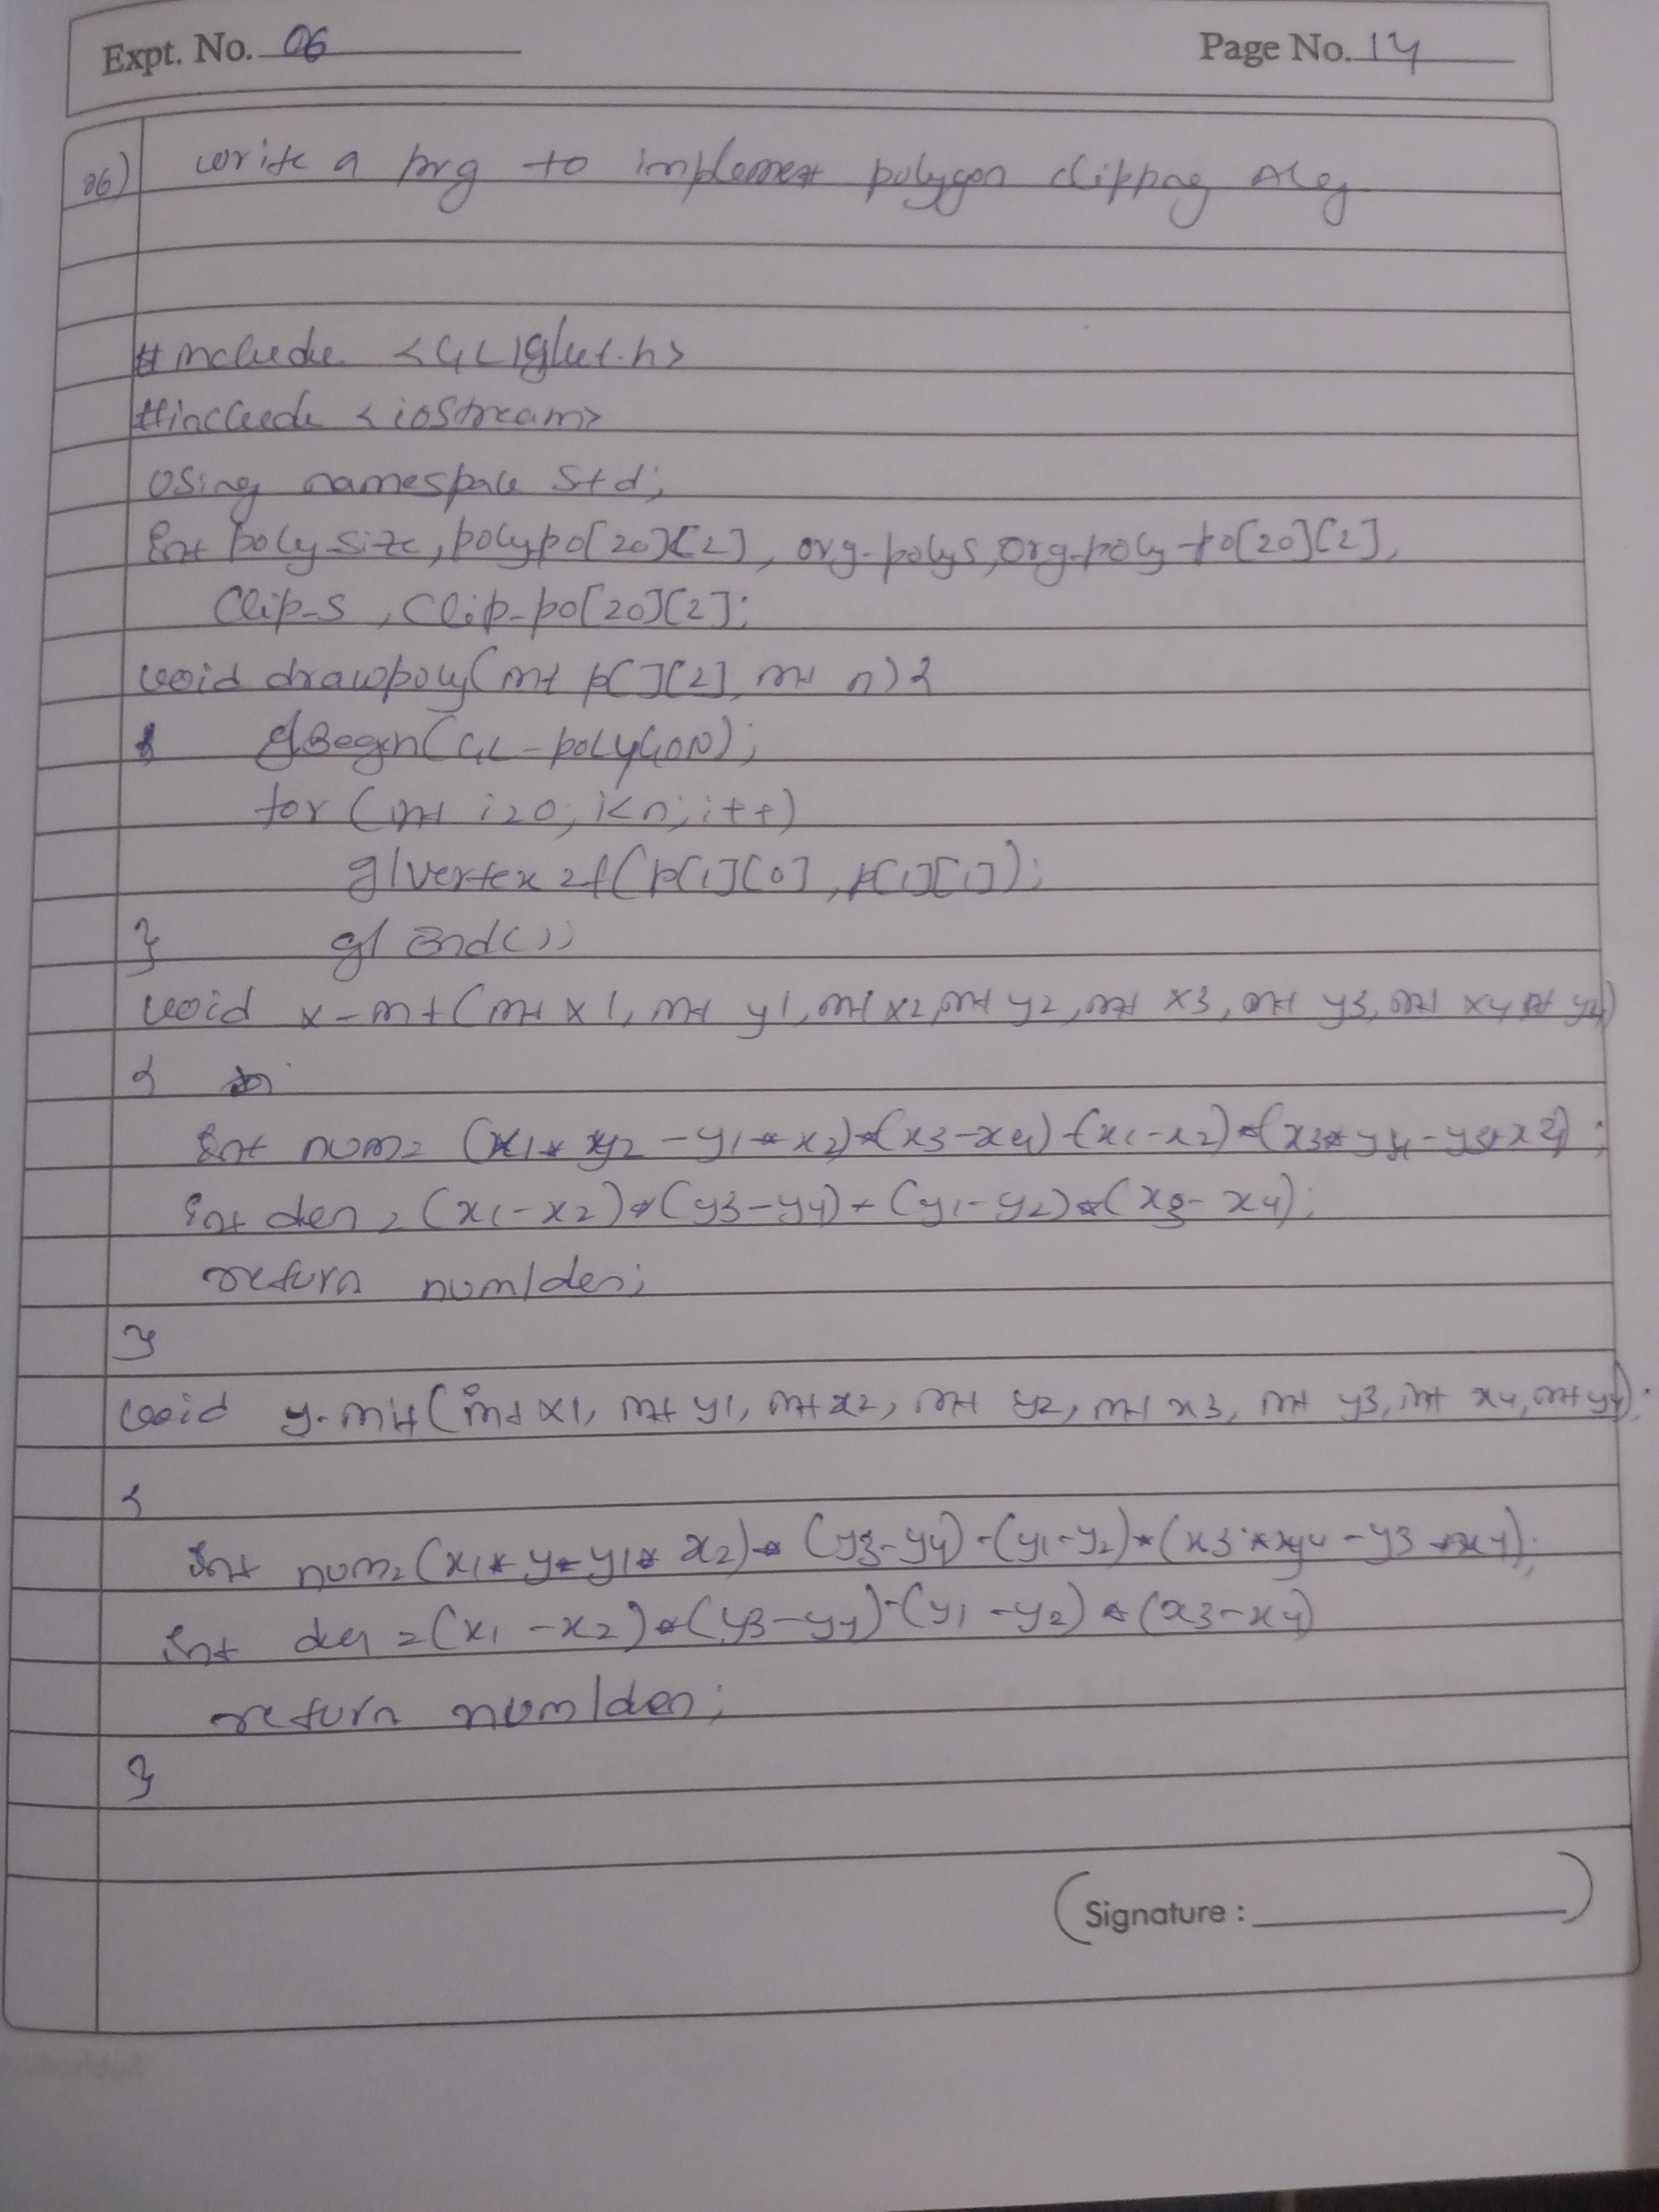 Expt. No. 06
Page No. 14
06) write a prg to implement polygon clipping Alg
#include <GL/glut.h>
#include <iostream>
Using namespace Std;
int poly_size, polypo[20][2], org-polys, org-poly-po[20][2],
Clip-s, Clip-po[20][2];
void drawpoly(int p[][2], int n){
glBegin(GL-POLYGON);
for (int i=0; i<n; i++)
glvertex2f(p[i][0], p[i][1]);
} glEnd();
void x-int(int x1, int y1, int x2, int y2, int x3, int y3, int x4, int y4)
{
int num= (x1*y2-y1*x2)*(x3-x4)-(x1-x2)*(x3*y4-y3*x4);
int den = (x1-x2)*(y3-y4)-(y1-y2)*(x3-x4);
return num/den;
}
void y-int(int x1, int y1, int x2, int y2, int x3, int y3, int x4, int y4);
{
int num=(x1*y-y1*x2)*(y3-y4)-(y1-y2)*(x3*y4-y3*x4);
int den =(x1-x2)*(y3-y4)-(y1-y2)*(x3-x4)
return num/den;
}
Signature :